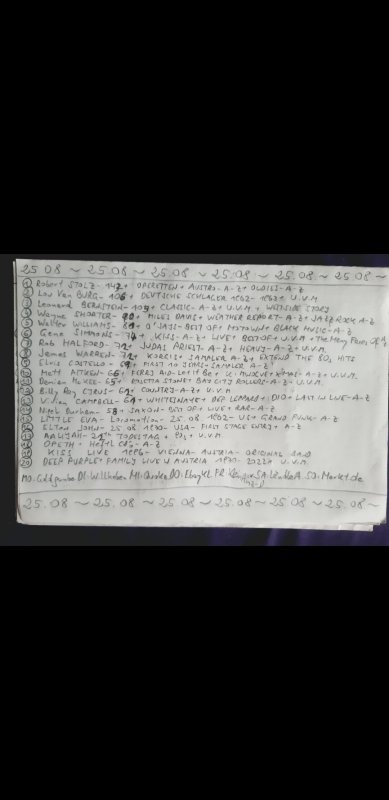 25.08 ~ 25.08 ~ 25.08 ~ 25.08 ~ 25.08 ~ 25.08 ~
① Robert STOLZ - 142 + OPERETTEN + AUSTRO - A-Z + OLDIES - A-Z
② Lou Van BURG - 106 + DEUTSCHE SCHLAGER 1962 - 1963 + U.V.M
③ Leonard BERNSTEIN - 104 + CLASSIC - A-Z + U.V.M + WESTSIDE STORY
④ Wayne SHORTER - 90 + MILES DAVIS + WEATHER REPORT - A-Z + JAZZ ROCK A-Z
⑤ Walter WILLIAMS - 80 + O'JAYS - BEST OF + MOTOWN + BLACK MUSIC - A-Z
⑥ Gene SIMMONS - 74 + KISS - A-Z + LIVE + BEST OF + U.V.M + The Many Faces
⑦ Rob HALFORD - 72 + JUDAS PRIEST - A-Z + HEAVY - A-Z + U.V.M.
James WARREN - 72 + KORGIS + SAMPLER A-Z + THE 80, HITS
Elvis COSTELLO - 69 + FIRST 10 YEARS + SAMPLER A-Z
Matt AITKEN - 66 + FERRY AID - LET IT BE + XMAS - A-Z + U.V.M.
65 + ROSETTA STONE + BAY CITY ROLLERS - A-Z + U.V.M.
Billy Ray CYRUS - 62 + COUNTRY - A-Z + U.V.M
Vivian CAMPBELL - 61 + WHITESNAKE + DEF LEPPARD + DIO + LAST IN LINE - A-Z
58 + SAXON - BEST OF + LIVE + RAR - A-Z
LITTLE EVA - Locomotion - 25.08.1962 - US + GRAND FUNK - A-Z
ELTON JOHN 25.08.1970 - USA - FIRST STAGE ENTRY + A-Z
AALIYAH - TODESTAG + U.V.M
OPETH - A-Z
KISS LIVE 1996 - VIENNA - AUSTRIA - ORIGINAL
DEEP PURPLE + FAMILY LIVE IN AUSTRIA U.V.M.
MO. DI. Willhaben MI. Quoka DO. Ebay KL. FR. SA. SO. Markt.de
25.08 ~ 25.08 ~ 25.08 ~ 25.08 ~ 25.08 ~ 25.08 ~